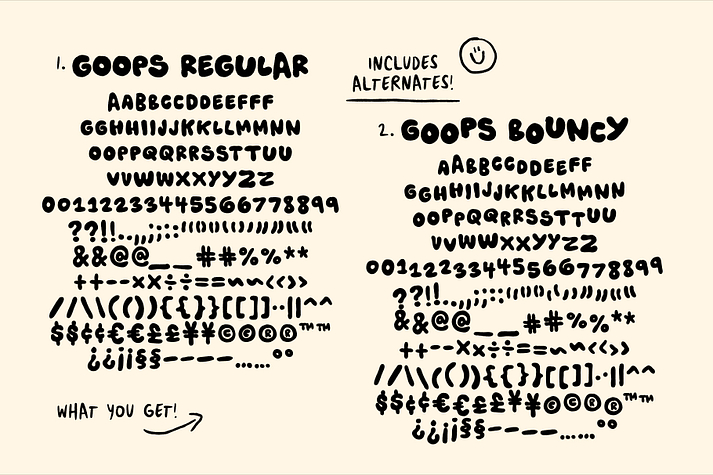 1. GOOPS REGULAR
AABBCCDDEEFFF
GGHHIIJJKKLLMMNN
OOPPQQRRSSTTUU
VVWWXXYYZZ
00112233445566778899
??!!..,,;;::''""(())
&&@@__##%%**
++--××÷÷==~~<<>>
//\\(()){{}}[[]]··||^^
$$¢¢€€££¥¥©©®®™™
¿¿¡¡§§–––—……°°
WHAT YOU GET!
INCLUDES
ALTERNATES!
2. GOOPS BOUNCY
AABBCCDDEEFF
GGHHIIJJKKLLMMNN
OOPPQQRRSSTTUU
VVWWXXYYZZ
00112233445566778899
??!!..,,;;::
&&@@__##%%**
++--××÷÷==~~<<>>
//\\(()){{}}[[]]··||^^
$$¢¢€€££¥¥©©®®™™
¿¿¡¡§§––——……°°